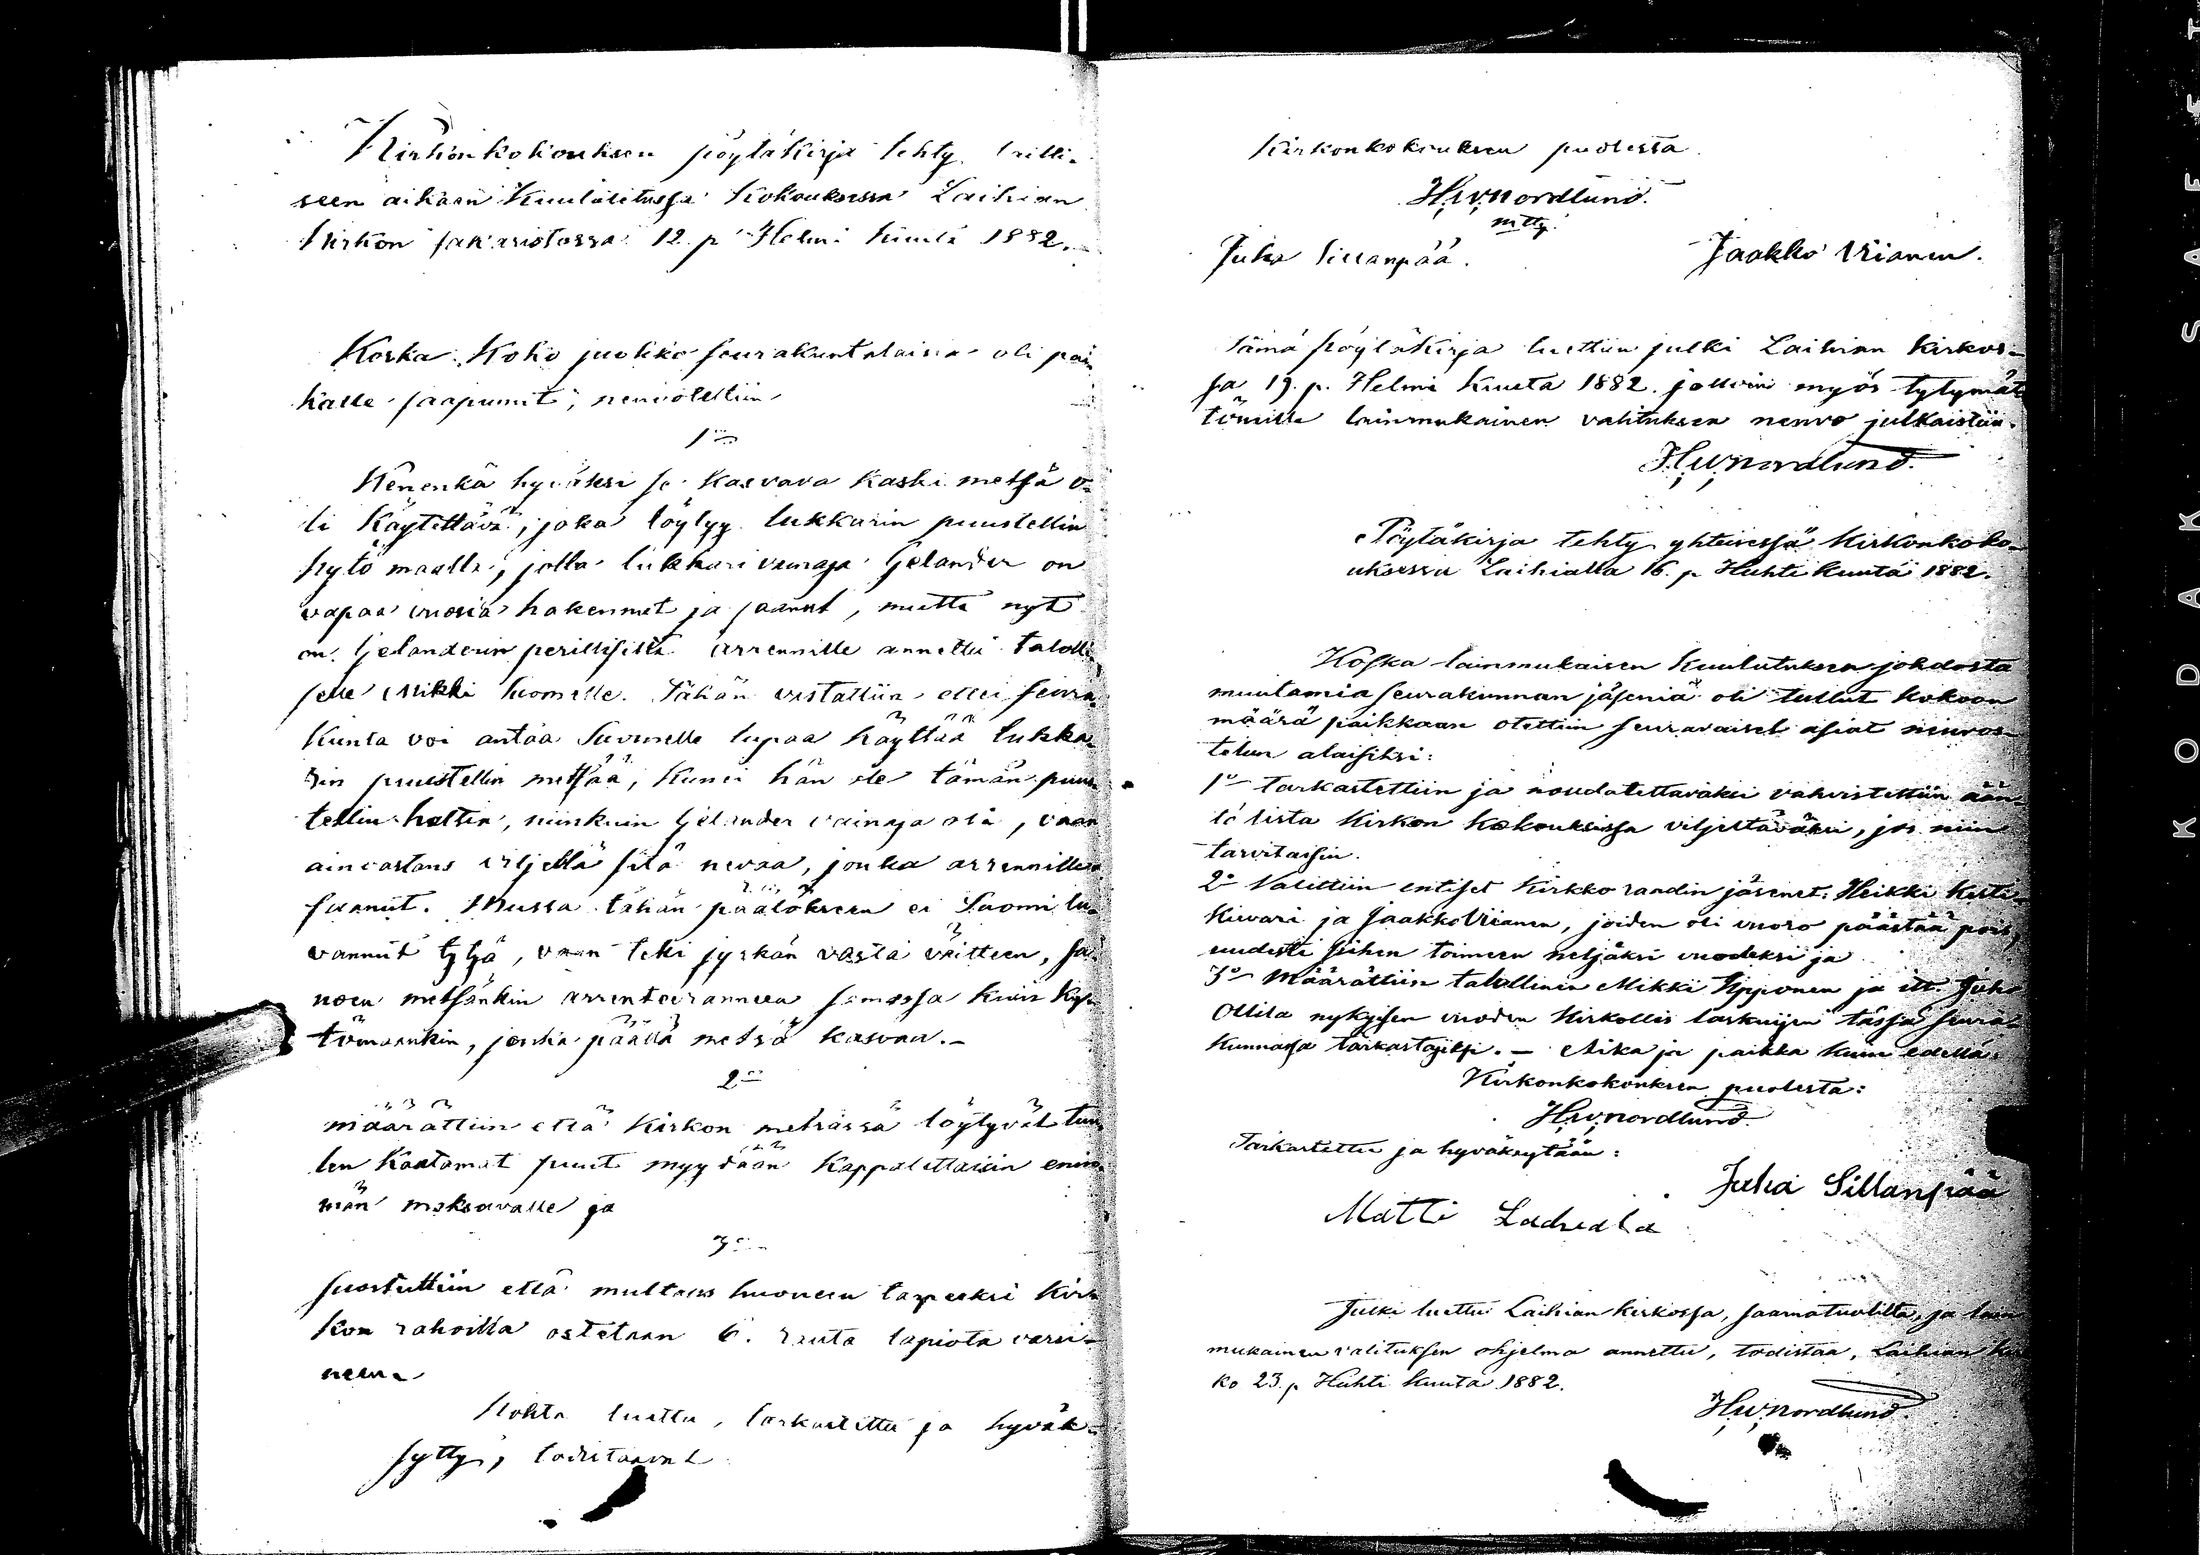 Kirkonkokouksen pöytäkirja tehty lailli-
seen aikaan Kuulutetussa Kokouksessa Laihian
kirkon sakaristossa 12. p Helmi kuuta 1882.
Koska Koko joukko seurakuntalaisia oli pai
kalle saapunut, neuvoteltiin
1o
Kenenkä hyväksi se kasvava kaski metsä o-
li Käytettävä, joka löytyy lukkarin puustellin
kytö maalla, jolla lukkari vainaja Gelander on
vapaa vuosia hakennut ja saanut, mutta nyt
on Gelanderin perillisiltä arrennille annettu talolli
selle Mikki Suomelle. Tähän vastattiin ettei seura
kunta voi antaa Suomelle lupaa käyttää lukka-
rin puustellin metsää, kunei hän ole tämän puus
tellin haltia, niinkuin Gelander vainaja oli, vaan
ainoastans viljellä sitä nevaa, jonka arrennille on
saanut. Mutta tähän päätökseen ei Suomi lu-
vannut tytyä, vaan teki jyrkän vasta väitteen, sa-
noen metsänkin arrenteeranneen samassa kuin Ky-
tömaankin, jonka päällä metsä kasvaa.-
2o
määrättiin että Kirkon metsässä löytyvät tuu
len Kaatamat puut myydään Kappalettaisin enim
män maksavalle ja
3o
suostuttiin että multaus huoneen tarpeeksi kir
kon rahoilla ostetaan 6. rauta lapiota varsi-
neen.
Kohta luettu, tarkastettu ja hyväk-
sytty, todistaavat
Kirkonkokouksen puolesta
H.W.Nordlund.
Juha Sillanpää. Jaakko Vrianen.
Tämä pöytäkirja luettiin julki Laihian Kirkos-
sa 19. p. Helmi Kuuta 1882. jolloin myös tytymät
tömille lainmukainen valituksen neuvo julkaistiin.
H.W.Nordlund.
Pöytäkirja tehty yhteisessä Kirkonkoko-
uksessa Laihialla 16. p Huhti kuuta 1882.
Koska lainmukaisen Kuulutuksen johdosta
muutamia seurakunnan jäseniä oli tullut kokoon
määrä paikkaan otettiin seuravaiset asiat neuvos-
telun alaisiksi:
1o tarkastettiin ja noudatettavaksi vahvistettiin ään-
tö lista Kirkon kokouksissa viljeltäväksi, jos niin
tarvitaisiin.
2o Valittiin entiset Kirkko raadin jäsenet: Heikki Kesti-
Kievari ja Jaakko Vrianen, joiden oli vuoro päästää pois,
uudesti siihen toimeen neljäksi vuodeksi ja
3o Määrättiin talollinen Mikki Ypponen ja itt. Juho
Ollila nykyisen vuoden Kirkollis laskuijen tässä seura-
kunnassa tarkastajiksi. - Aika ja paikka kuin edellä:
Kirkonkokouksen puolesta:
H.W.Nordlund.
Tarkastettu ja hyväksytään:
Juha Sillanpää
Matti
Julki luettu Laihian kirkossa, saarnatuolilta, ja lain
mukainen valituksen ohjelma annettu, todistaa, Laihian kir
ko 23 p Huhti kuuta 1882.
H.W.Nordlund.
KODAK SAFET